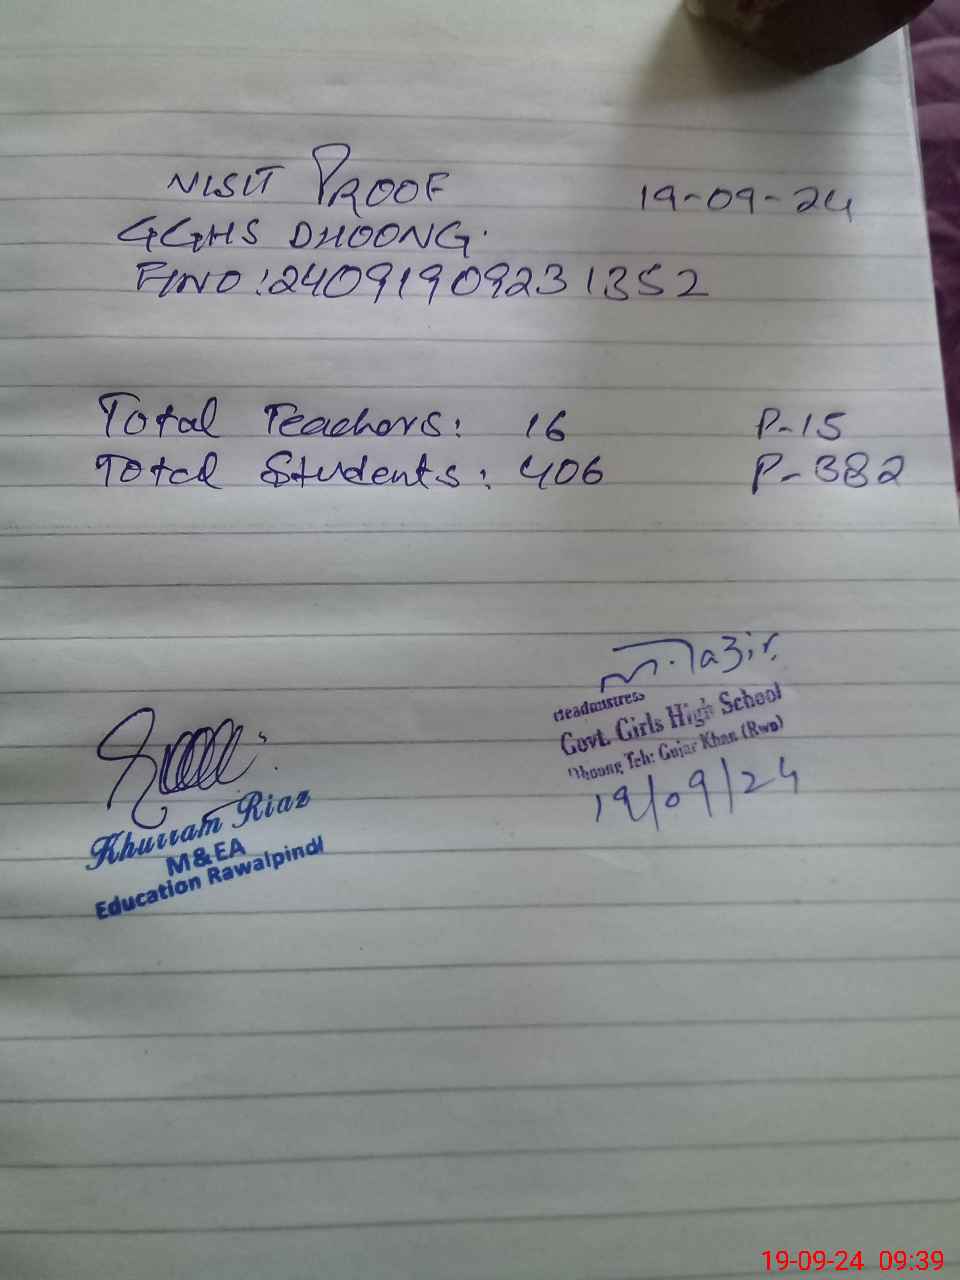 VISIT PROOF 19-09-24
GGHS DHOONG.
F/NO: 24091909231352
Total Teachers: 16 P-15
Total Students: 406 P-382
Headmistress
Govt. Girls High School
Dhoong Teh: Gujar Khan (Rwp)
19/09/24
Khurram Riaz
M&EA
Education Rawalpindi
19-09-24 09:39